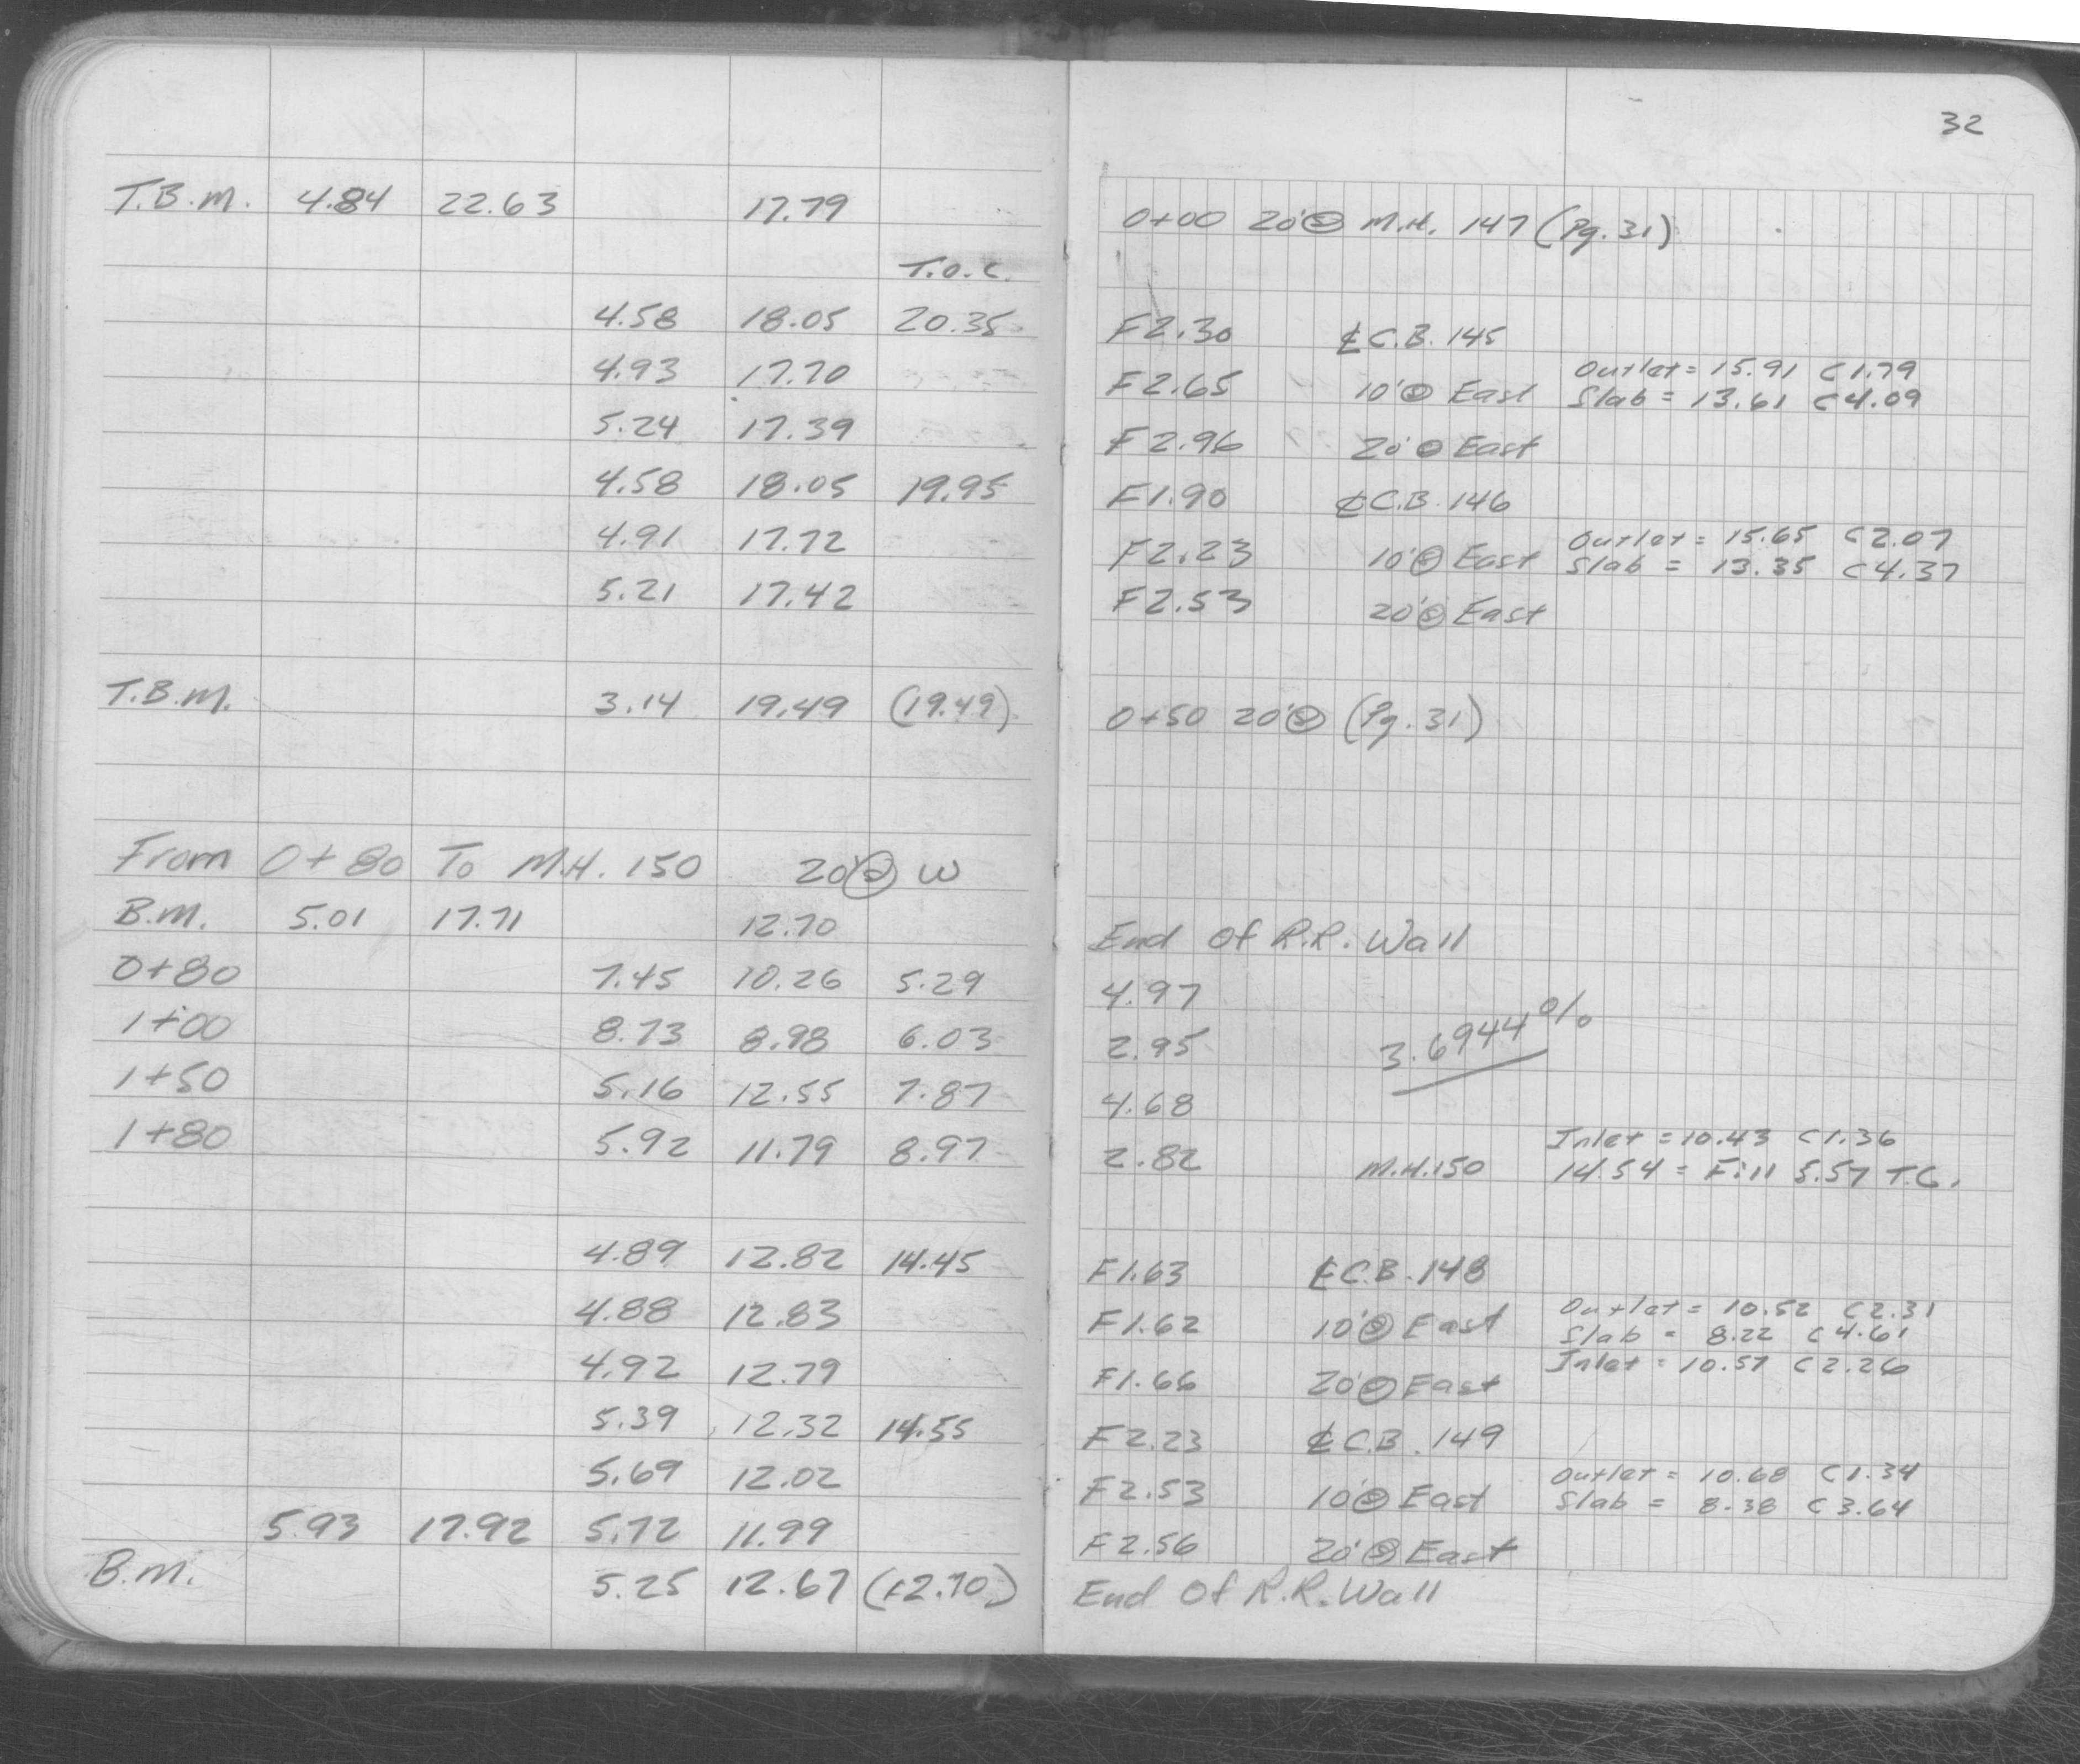 32
T.B.M. 4.84 22.63 17.79 0+00 20'⊖ M.H. 147 (Pg. 31)
T.O.C.
4.58 18.05 20.35 F2.30 ℄ C.B. 145
4.93 17.70 F2.65 10'⊖ East Outlet = 15.91 C1.79
Slab = 13.61 C4.09
5.24 17.39 F2.96 20'⊖ East
4.58 18.05 19.95 F1.90 ℄ C.B. 146
4.91 17.72 F2.23 10'⊖ East Outlet = 15.65 C2.07
Slab = 13.35 C4.37
5.21 17.42 F2.53 20'⊖ East
T.B.M. 3.14 19.49 (19.49) 0+50 20'⊖ (Pg. 31)
From 0+80 To M.H. 150 20'⊖ W
B.M. 5.01 17.71 12.70 End Of R.R. Wall
0+80 7.45 10.26 5.29 4.97
1+00 8.73 8.98 6.03 2.95 3.6944%
1+50 5.16 12.55 7.87 4.68
1+80 5.92 11.79 8.97 2.82 M.H. 150 Inlet = 10.43 C1.36
14.54 = Fill 5.57 T.C.
4.89 12.82 14.45 F1.63 ℄ C.B. 148
4.88 12.83 F1.62 10'⊖ East Outlet = 10.52 C2.31
Slab = 8.22 C4.61
4.92 12.79 F1.66 20'⊖ East Inlet = 10.57 C2.26
5.39 12.32 14.55 F2.23 ℄ C.B. 149
5.69 12.02 F2.53 10'⊖ East Outlet = 10.68 C1.34
Slab = 8.38 C3.64
5.93 17.92 5.72 11.99 F2.56 20'⊖ East
B.M. 5.25 12.67 (12.70) End Of R.R. Wall